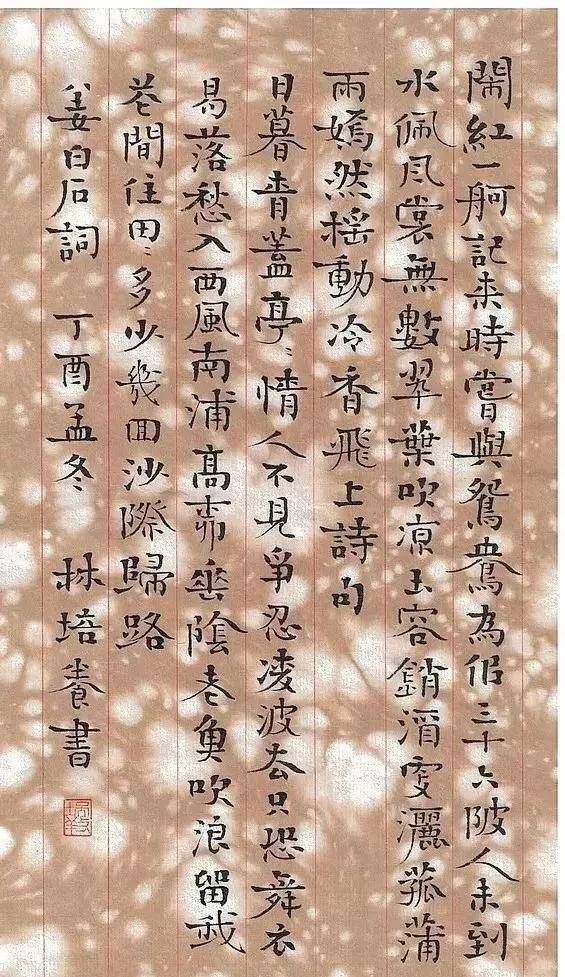 鬧紅一舸記来時嘗與鴛鴦為侣三十六陂人未到
水佩风裳無數翠葉吹凉玉容銷酒更灑菰蒲
雨嫣然摇動冷香飛上詩句
日暮青蓋亭〻情人不見爭忍凌波去只恐舞衣
易落愁入西風南浦髙柳垂陰老魚吹浪留我
花間住田〻多少幾回沙際歸路
姜白石詞 丁酉孟冬 林培養書